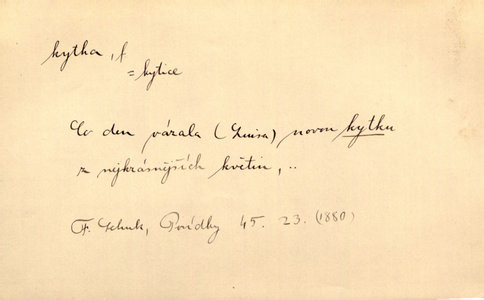 kytka, f
= kytice
Co den vázala (Luisa) novou kytku
z nejkrásnějších květin, ..
F. Schulz, Povídky 45. 23. (1880)